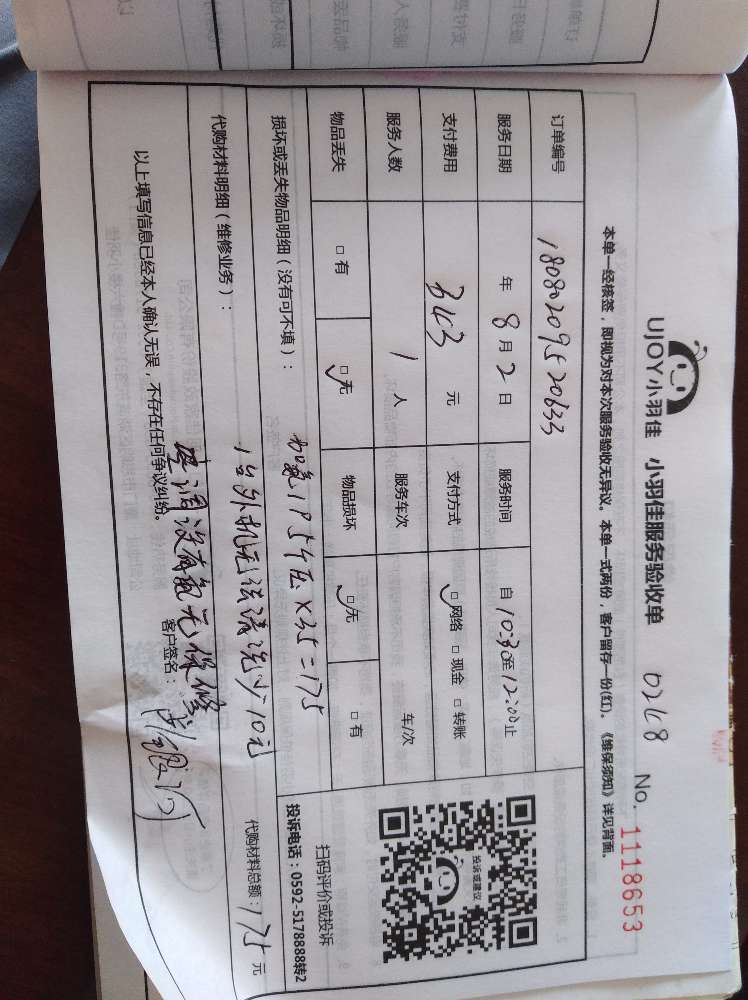 UJOY小羽佳 小羽佳服务验收单 0268 No. 1118653
本单一经核签，即视为对本次服务验收无异议。本单一式两份，客户留存一份(红)。《维保须知》详见背面。
订单编号 18080209520633
服务日期 年 8 月 2 日 服务时间 自 10:30 至 12:00 止
支付费用 元 支付方式 □网络 □现金 □转账
服务人数 1 人 服务车次 车/次
物品丢失 □有 □无 物品损坏 □无 □有
投诉或建议
扫码评价或投诉
投诉电话：0592-5178888转2
损坏或丢失物品明细（没有可不填）：
加氟1P 5个压×35=175
代购材料明细（维修业务）：
1台外机无法清洗少10元
代购材料总额：175 元
空调没有氟无保修
以上填写信息已经本人确认无误，不存在任何争议纠纷。
客户签名：